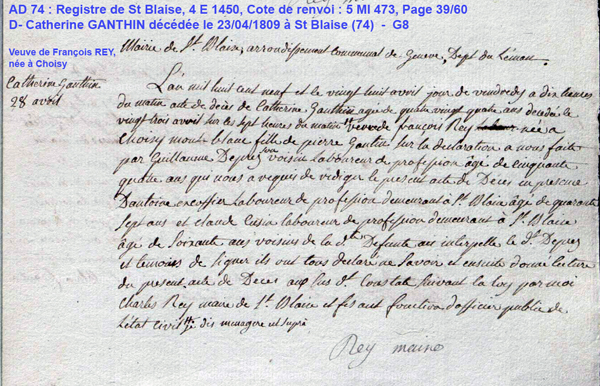 AD 74 : Registre de St Blaise, 4 E 1450, Cote de renvoi : 5 MI 473, Page 39/60
D- Catherine GANTHIN décédée le 23/04/1809 à St Blaise (74) - G8
Veuve de François REY,
née à Choisy
Mairie de St Blaise, arrondissement communal de Geneve, Dept du Léman.
Catherine Ganthin
28 avril
L'an mil huit cent neuf et le vingt huit avril jour de vendredy a dix heures
du matin acte de décès de Catherine Ganthin agée de quatre vingt quatre ans decedée le
vingt trois avril sur les sept heures du matin veuve de françois Rey née a
Choisy mont blanc fille de pierre Gantin sur la declaration a nous faite
par Guillaume Deprez son voisin laboureur de profession âgé de cinquante
quatre ans qui nous a requis de rédiger le present acte de Décès en presence
Dantoine excoffier Laboureur de profession demeurant à St Blaise âgé de quarante
sept ans et claude Cusin laboureur de profession demeurant à St Blaise
âgé de soixante ans voisins de la dte Defunte aus interpellé le Sr Deprez
et temoins de signer ils ont tous declaré ne savoir et ensuite donné lecture
du present acte de Deces aux sus dt Constaté suivant la loy par moi
Charles Rey maire de St Blaise et fesant fonction d'officier public de
l'état civil dis menagere et supra
Rey maire